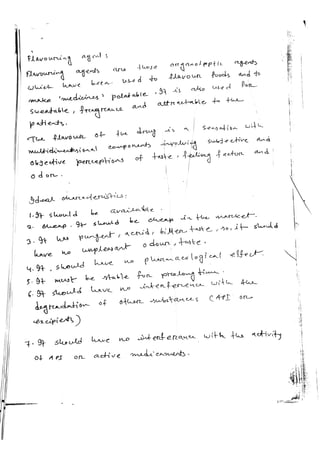 Flavouring agent :
Flavouring agents are those organoleptic agents
which have been used to flavour foods and to
make 'medicines' palatable. It is also used for
sweetable, fragrance and attractable to the
patients.
The flavour of the drug is a sensation with
multidimensional components involving subjective and
objective perceptions of taste, feeling factors and
odor.
Ideal characteristics:
1. It should be available.
2. cheap. It should be cheap in the market.
3. It has pungent, acrid, bitter taste, so, it should
have no unpleasant odour, taste.
4. It should have no pharmacological effect.
5. It must be stable for prolong time.
6. It should have no interference with the
degradation of other substances (API or
excipients)
7. It should have no interference with the activity
of API or active medicaments.